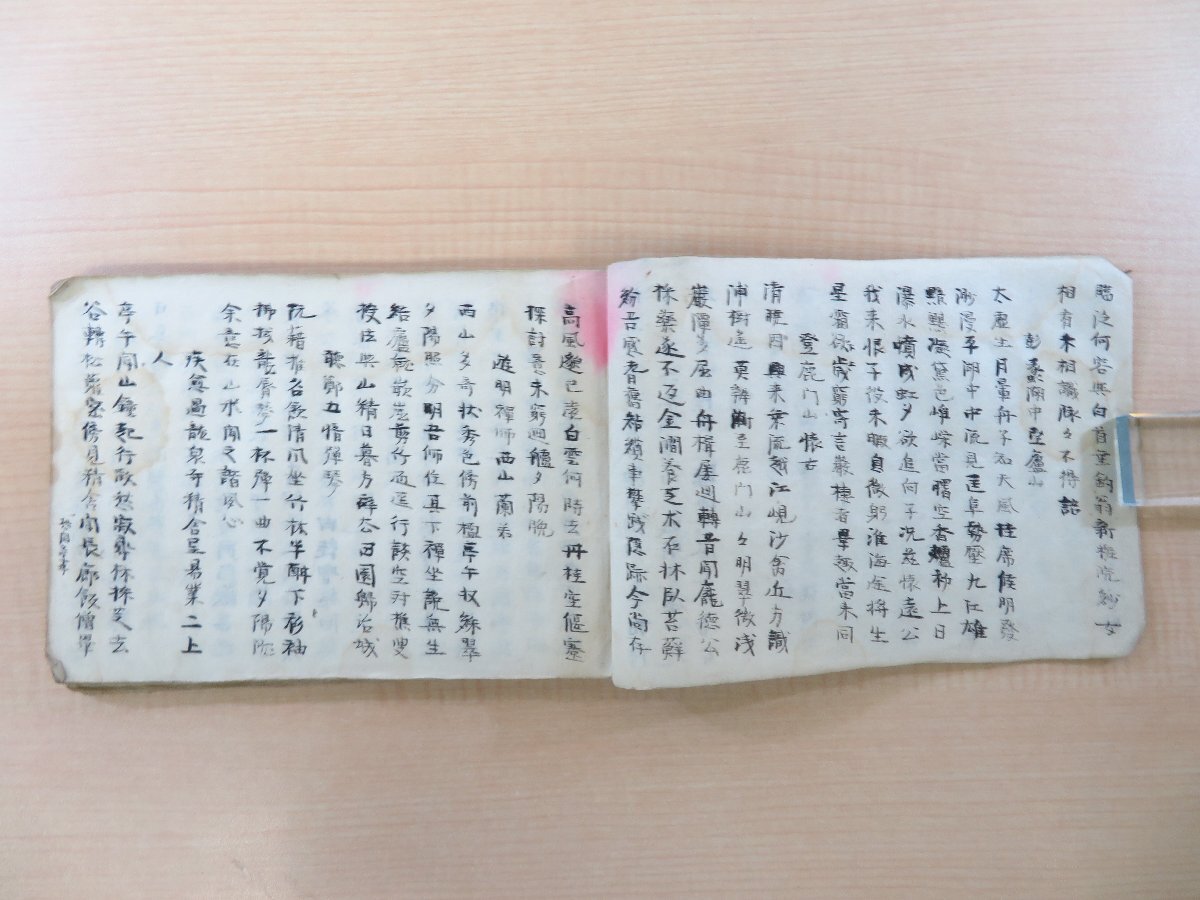 臨泛何容與白首垂釣翁新粧浣紗女
相看未相識脉々不得語
彭蠡湖中望廬山
太虛生月暈舟子知天風挂席候明發
渺漫平湖中中流見匡阜勢壓九江雄
黯黮凝黛色崢嶸當曙空香爐初上日
瀑水噴成虹久欲追向子況茲懷遠公
我来恨于役未暇息微躬淮海途將半
星霜歲欲窮寄言巖棲者畢趣當来同
登鹿門山懷古
清曉因興来乗流越江峴沙禽近方識
浦樹遙莫辨漸至鹿門山々明翠微淺
巖潭多屈曲舟楫屢迴轉昔聞龐德公
採藥遂不返金澗養芝朮石床臥苔蘚
紛吾感耆舊結纜事攀踐隱跡今尚存
高風邈已遠白雲何時去丹桂空偃蹇
探討意未窮迴艫夕陽晚
遊明禪師西山蘭若
西山多奇狀秀色傍前楹亭午收綵翠
夕陽照分明吾師住其下禪坐說無生
結廬就嵌窟剪竹通逕行談空對樵叟
授法與山精日暮方辭去田園歸冶城
聽鄭五愔彈琴
阮籍推名飲清風坐竹林半酣下衫袖
拂拭龍脣琴一杯彈一曲不覺夕陽沉
余意在山水聞之諧夙心
疾愈過龍泉寺精舎呈易業二上
人
亭午聞山鐘起行散愁寂尋林採芝去
谷轉松蘿密傍見精舎開長廊飯僧畢